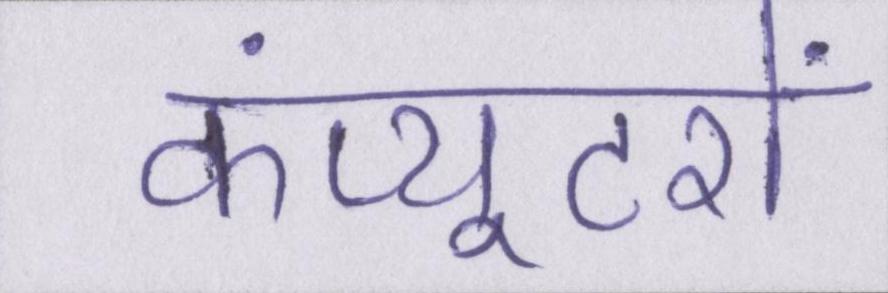 कंप्यूटरों